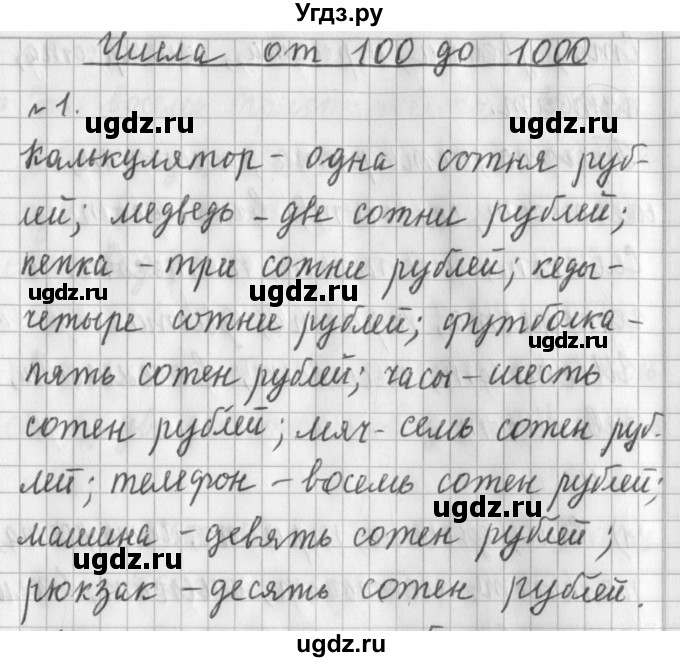 Угдз.ру
Числа от 100 до 1000
№1.
ugdz.ru ugdz.ru
Калькулятор - одна сотня руб-
лей; медведь - две сотни рублей;
кепка - три сотни рублей; кеды -
ugdz.ru ugdz.ru
четыре сотни рублей; футболка -
ugdz.ru
пять сотен рублей; часы - шесть
сотен рублей; мяч - семь сотен руб-
лей; телефон - восемь сотен рублей;
ugdz.ru
машина - девять сотен рублей;
ugdz.ru
рюкзак - десять сотен рублей.
ugdz.ru